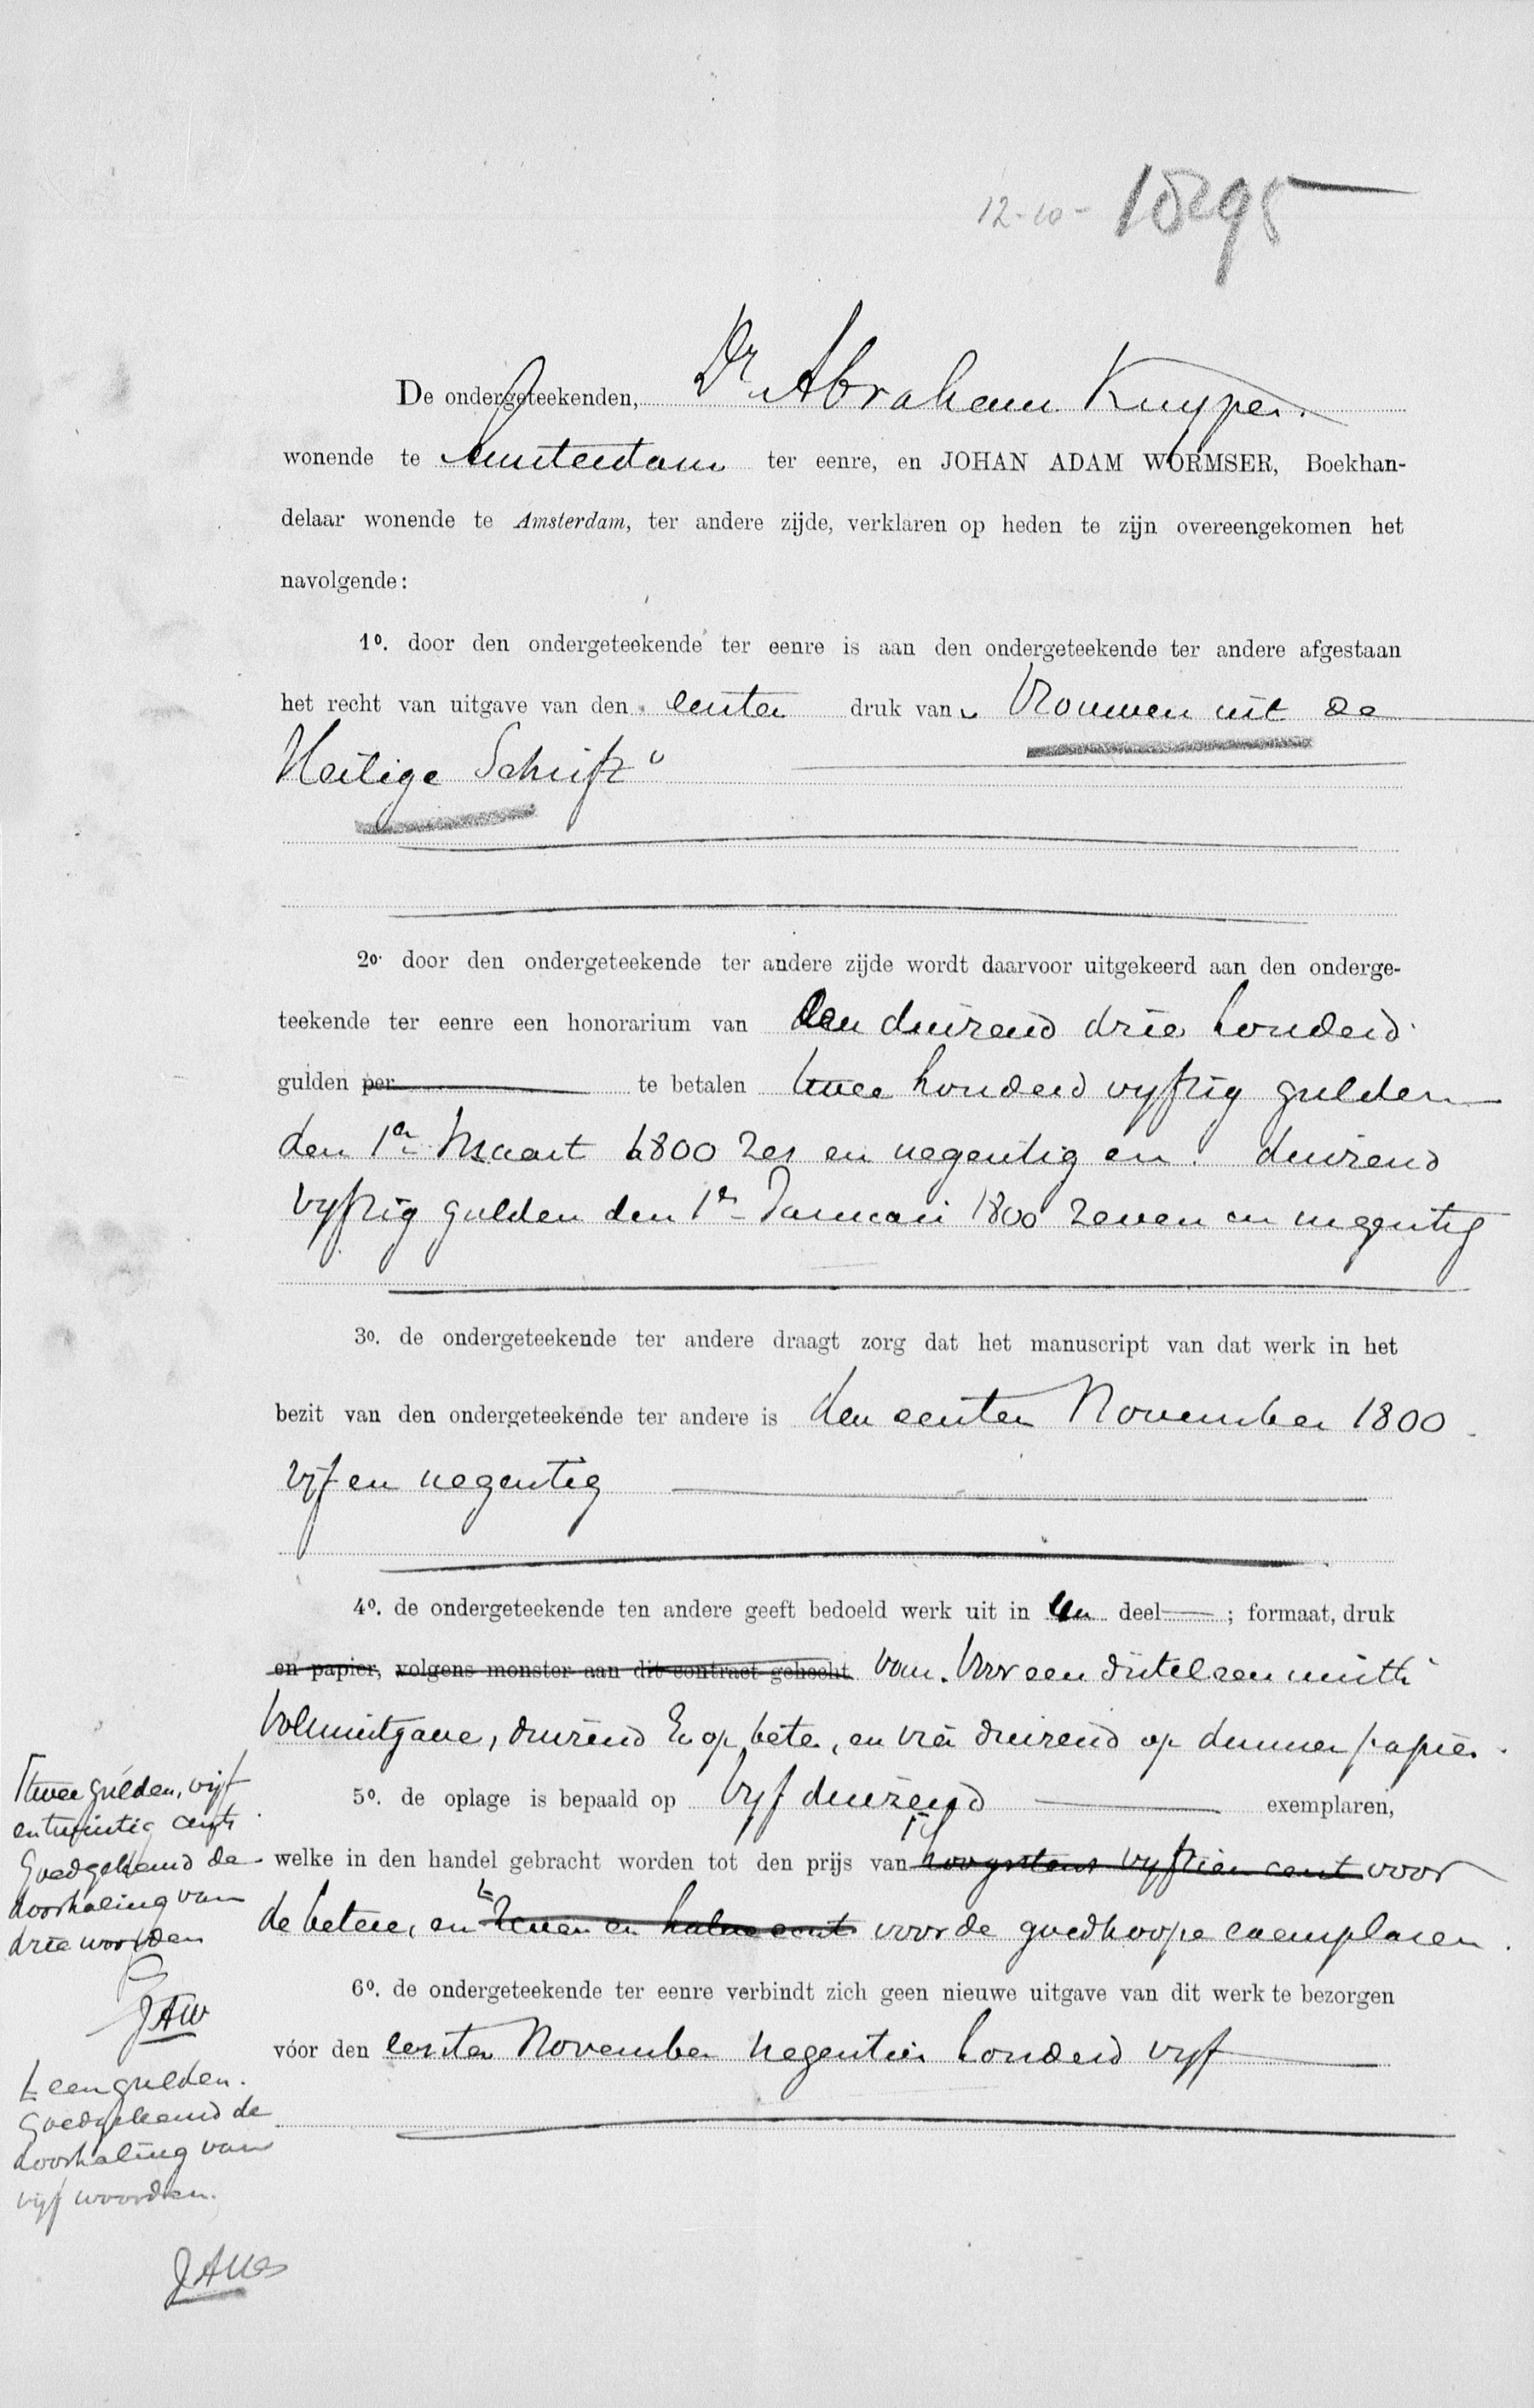 12-10- 1895
De ondergeteekenden, Dr Abraham Kuyper.
wonende te Amsterdam ter eenre, en JOHAN ADAM WORMSER, Boekhan-
delaar wonende te Amsterdam, ter andere zijde, verklaren op heden te zijn overeengekomen het
navolgende:
1º. door den ondergeteekende ter eenre is aan den ondergeteekende ter andere afgestaan
het recht van uitgave van den eersten druk van „Vrouwen uit de
Heilige Schrift"
2º. door den ondergeteekende ter andere zijde wordt daarvoor uitgekeerd aan den onderge-
teekende ter eenre een honorarium van een duizend drie honderd
gulden per te betalen twee honderd vyftig gulden
den 1en Maart 1800 zes en negentig en duizend
vyftig gulden den 1en Januari 1800 zeven en negentig
3º. de ondergeteekende ter andere draagt zorg dat het manuscript van dat werk in het
bezit van den ondergeteekende ter andere is den eersten November 1800
vijf en negentig
4º. de ondergeteekende ten andere geeft bedoeld werk uit in een deel ; formaat, druk
en papier, volgens monster aan dit contract gehecht van. Voor een
Volksuitgave, duizend Ex op beter, en vier duizend op dunner papier.
5º. de oplage is bepaald op Vyf duizend exemplaren,
welke in den handel gebracht worden tot den prijs van hoogstens vyftien cent voor
de betere, en zeven en halve cents voor de goedkoope exemplaren.
6º. de ondergeteekende ter eenre verbindt zich geen nieuwe uitgave van dit werk te bezorgen
vóor den eersten November negentien honderd vyf
twee gulden, vijf
en twintig cents
Goedgekeurd de
doorhaling van
drie woorden
JAW
een gulden.
Goedgekeurd de
doorhaling van
vijf woorden.
JAW